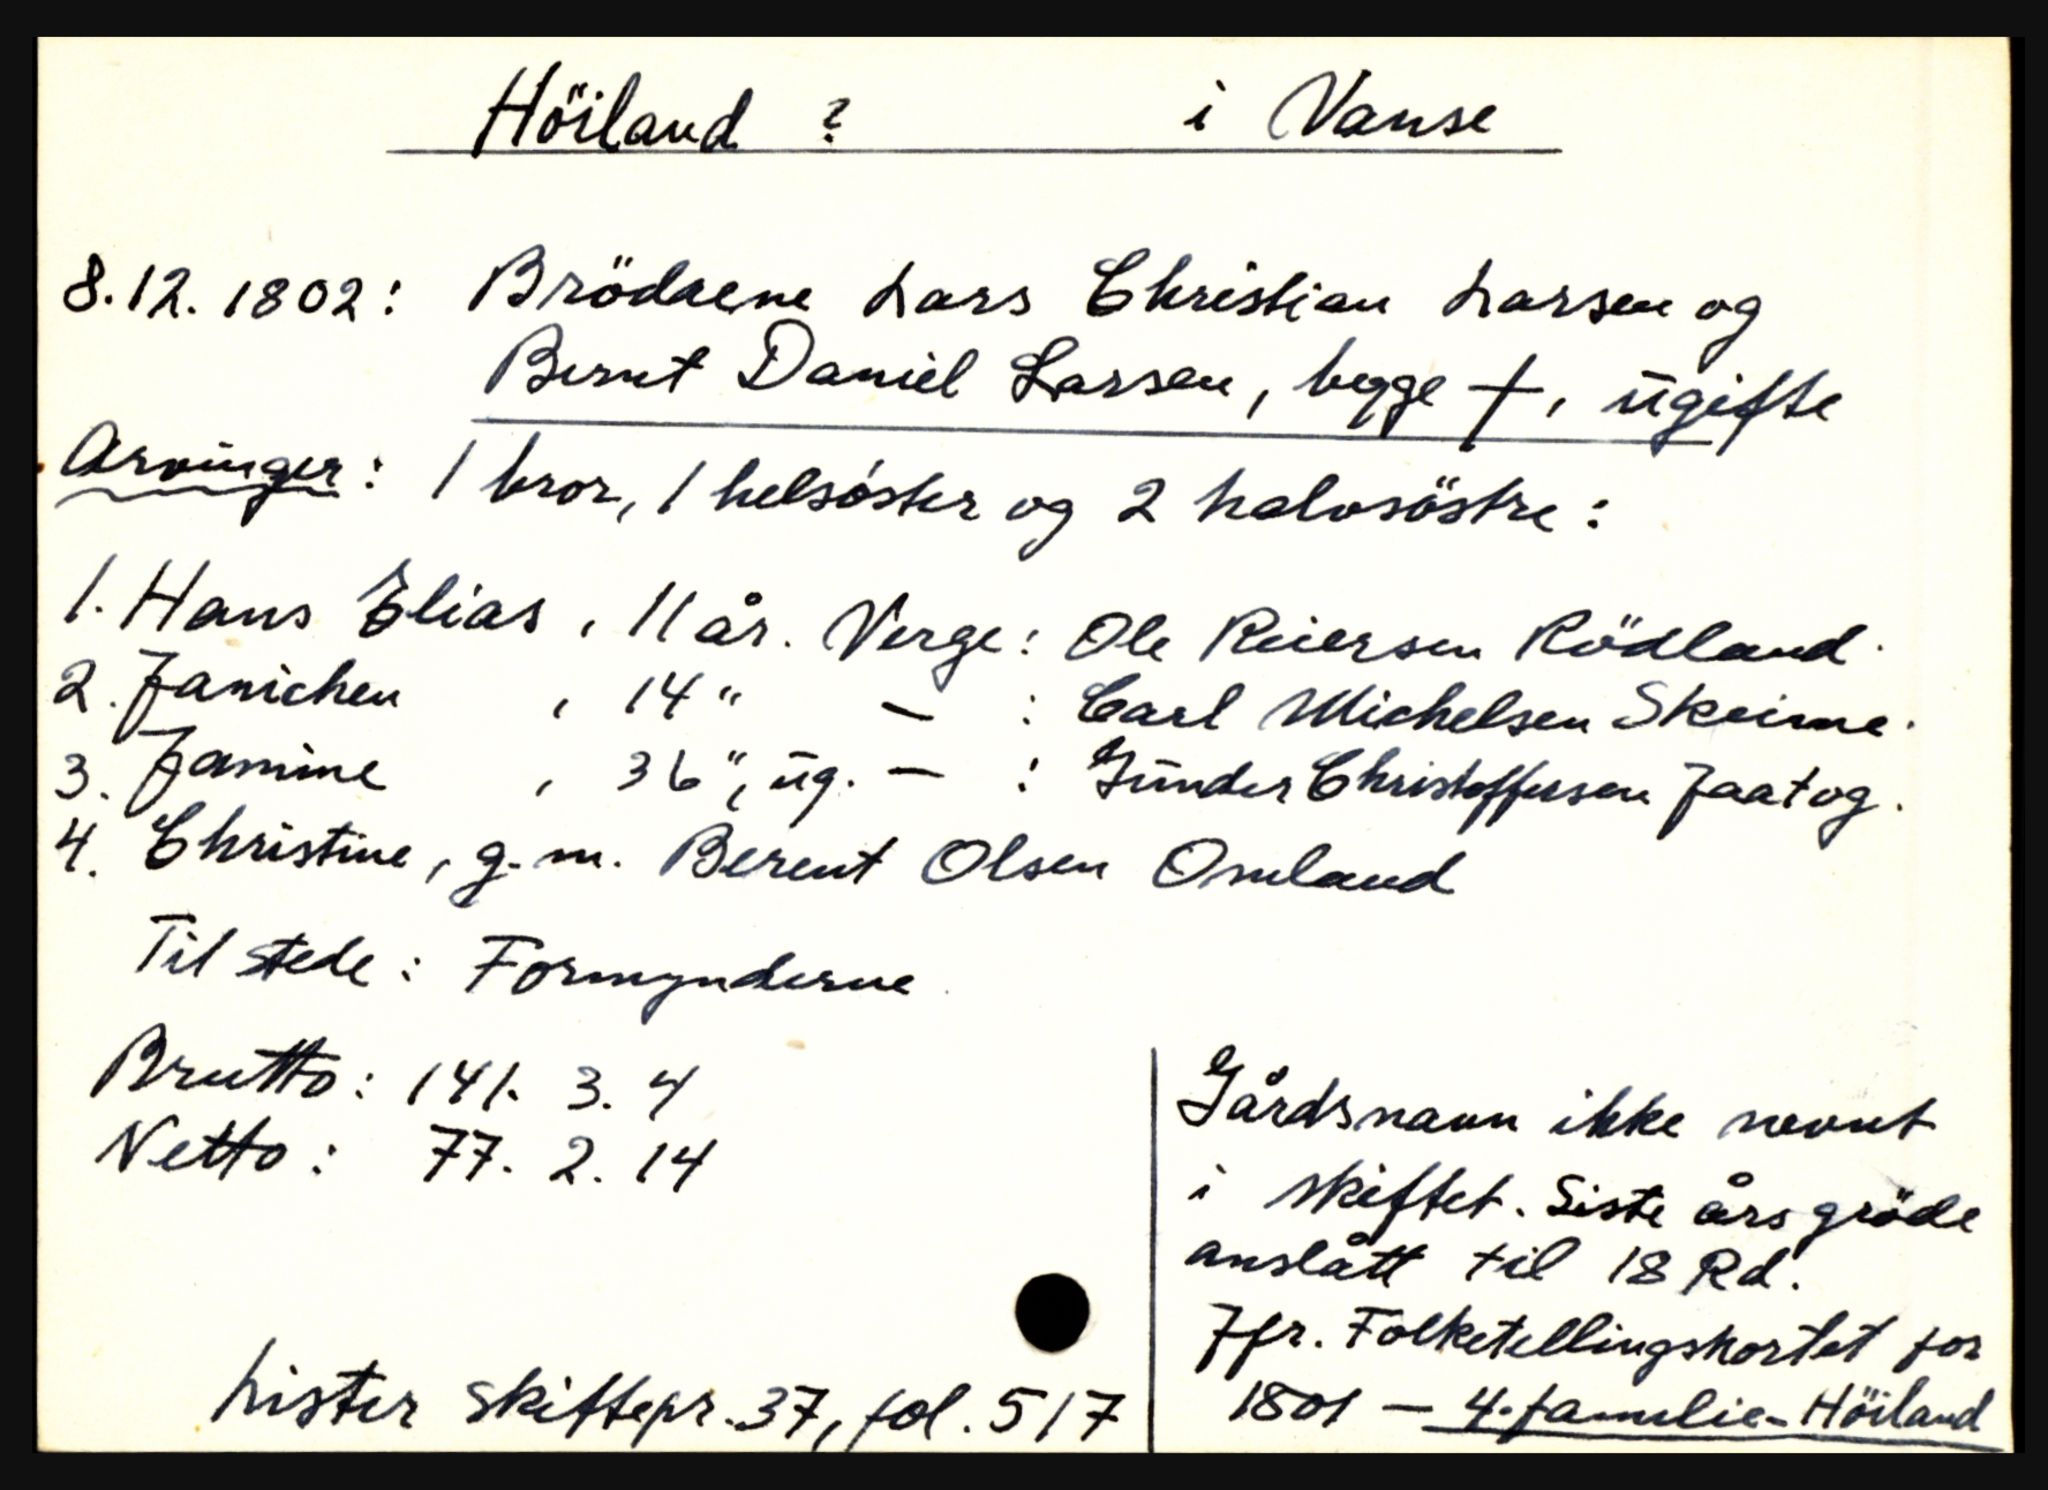 Höiland ? i Vanse
8.12.1802: Brödrene Lars Christian Larsen og
Bernt Daniel Larsen, begge †, ugifte
Arvinger: 1 bror, 1 helsöster og 2 halvsöstre:
1. Hans Elias, 11 år. Verge: Ole Reiersen Rödland.
2. Janichen, 14 " — : Carl Michelsen Skeime.
3. Jamine, 36 ", ug. — : Gunder Christoffersen Jaatog.
4. Christine, g.m. Berent Olsen Omland
Til stede: Formynderne.
Brutto: 141. 3. 4
Netto: 77. 2. 14
Gårdsnavn ikke nevnt
i skiftet. Siste års gröde
anslått til 18 Rd.
Jfr. Folketellingskortet for
1801 — 4. familie - Höiland
Lister skiftepr. 37, fol. 517